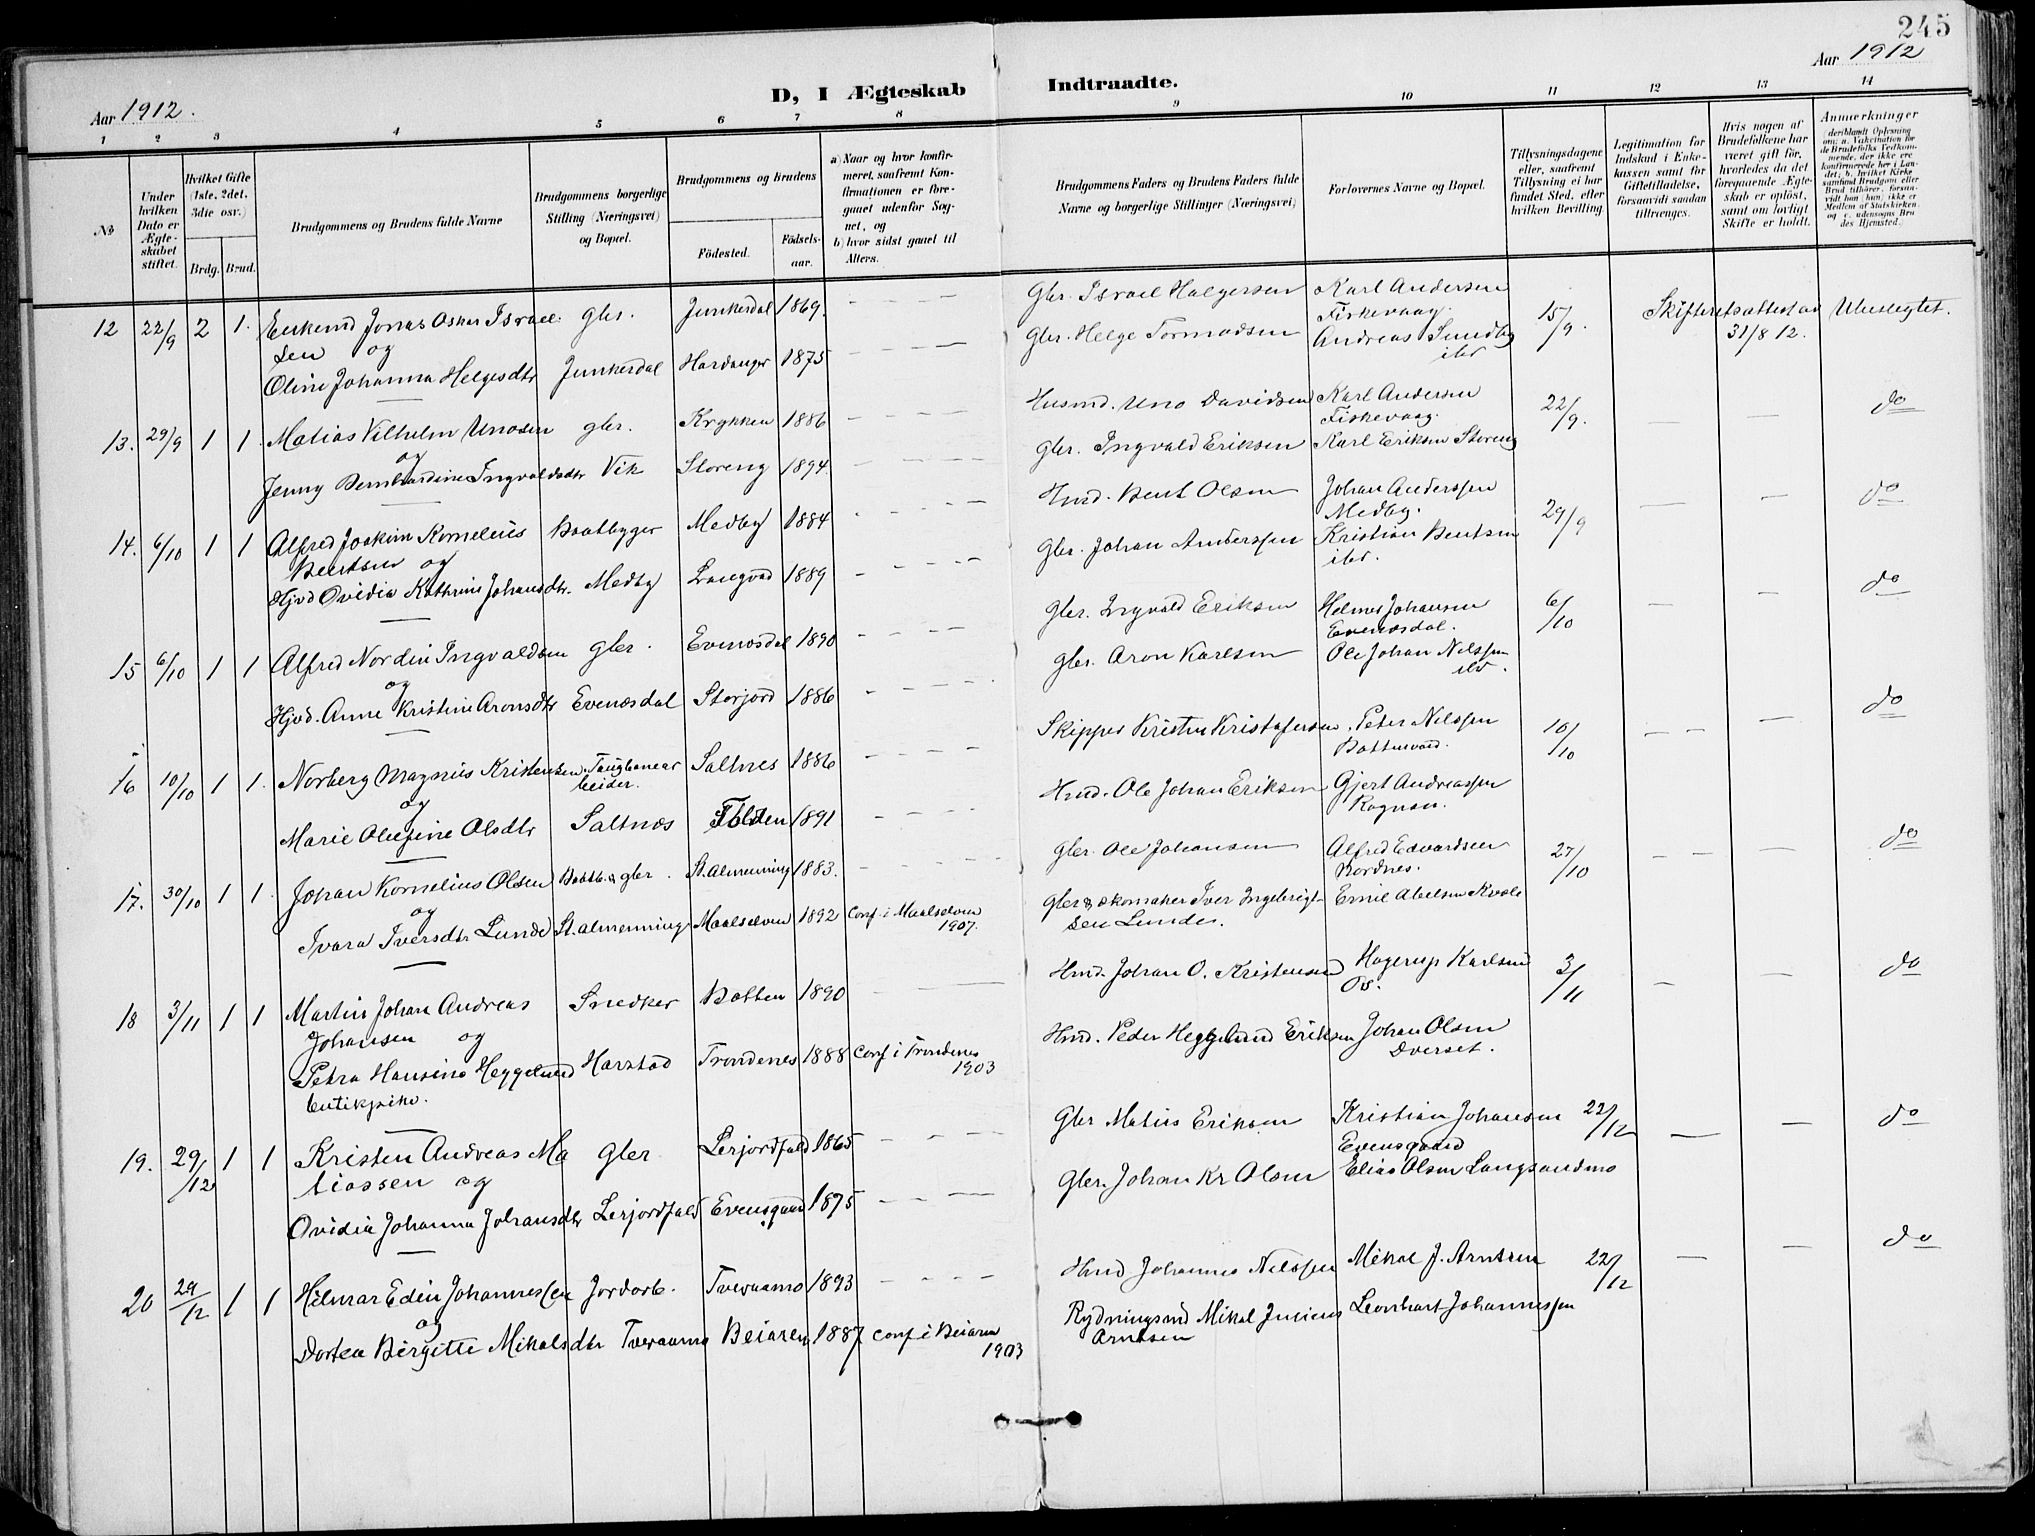 245
Aar 1912.
D, I Ægteskab Indtraadte.
Aar 1912
1 2 3 4 5 6 7 8 9 10 11 12 13 14
№
Under hvilken Dato er Ægteskabet stiftet.
Hvilket Gifte (1ste, 2det, 3die osv.)
Brdg. Brud.
Brudgommens og Brudens fulde Navne
Brudgommens borgerlige Stilling (Næringsvei) og Bopæl.
Brudgommens og Brudens
Födested. Födsels-aar.
a) Naar og hvor konfirmeret, saafremt Konfirmationen er foregaaet udenfor Sognet, og
b) hvor sidst gaaet til Alters.
Brudgommens Faders og Brudens Faders fulde Navne og borgerlige Stillinger (Næringsvei)
Forlovernes Navne og Bopæl.
Tillysningsdagene eller, saafremt Tillysning ei har fundet Sted, efter hvilken Bevilling.
Legitimation for Indskud i Enkekassen samt for Giftetilladelse, forsaavidt saadan tiltrænges.
Hvis nogen af Brudefolkene har været gift før, hvorledes da det foregaaende Ægteskab er oplöst, samt om lovligt Skifte er holdt.
Anmerkninger
(deriblandt Oplysning om: a. Vakcination for de Brudefolks Vedkommende, der ikke ere konfirmerede her i Landet, b. hvilket Kirkesamfund Brudgom eller Brud tilhører, forsaavidt han (hun) ikke er Medlem af Statskirken, og c. udensogns Brudes Hjemsted.)
12 22/9 2 1. Enkemd Jonas Oskar Israel- gbr. Junkerdal 1869. Gbr. Israel Holgersen Karl Andersen Fiskevaag. 15/9. Skifteretsattest av 31/8 12. Ubeslegtet.
sen og
Oline Johanna Helgesdtr Junkerdal Hardanger 1875 Gbr. Helge Tormodsen Andreas Sundby ibd
13. 29/9 1 1. Matias Vilhelm Unosen gbr. Krykken 1886 Husmd. Uno Davidsen Karl Andersen Fiskevaag. 22/9. — — do
og
Jenny Bernhardine Ingvaldsdtr Vik Storeng 1894. gbr. Ingvald Eriksen Karl Eriksen Storeng
14. 6/10 1 1 Alfred Joakim Kornelius Baatbygger Medby 1884 Hmd. Bent Olsen Johan Anderssen Medby. 29/9 — — do
Bentsen og
Hjvd Ovidia Kathrine Johansdtr. Medby Langvad 1889 gbr. Johan Anderssen Kristian Bentsen ibd.
15 6/10 1 1 Alfred Nordin Ingvaldsen gbr. Evenesdal 1890 gbr. Ingvald Eriksen Helmer Johansen Evenesdal. 6/10 — — do
og
Hjvd. Anne Kristine Aronsdtr Evenesdal Storjord 1886 gbr. Aron Karlsen Ole Johan Nilssen ibd.
16 10/10 1 1. Norberg Magnus Kristensen Taugbanearbeider. Saltnes 1886 Skipper Kristen Kristofersen Peter Nilssen Bottnvand. 10/10 — — do
og
Marie Olefine Olsdtr Saltnæs Folden 1891 Hmd. Ole Johan Eriksen Gjert Andreassen Rognan.
17. 30/10 1 1. Johan Kornelius Olsen Baatb. & gbr. St. Almenning 1883. gbr. Ole Johansen Alfred Edvardsen Nordnes. 27/10 — — do
og
Ivara Iversdtr Lunde St. almenning Maalselven 1892 Conf. i Maalselven 1907. gbr & skomaker Iver Ingebrigtsen Lunde. Emil Abelsen Kvale
18 3/11 1 1 Martin Johan Andreas Snedker Botten 1890 Hmd. Johan O. Kristensen Hagerup Karlsen Os. 3/11 — — do
Johansen og
Petra Hansine Heggelund Harstad Trondenes 1888 Conf i Trondenes 1903 Hmd. Peder Heggelund Eriksen Johan Olsen Dverset.
butikpike.
19. 29/12 1 1 Kristen Andreas Ma gbr. Lerjordfald 1865 Gbr Matius Eriksen Kristian Johansen Evensgaard 22/12 — — do
tiassen og
Ovidia Johanna Johansdtr Lerjordfald Evensgaard 1875 Gbr. Johan Kr Olsen Elias Olsen Langsandmo
20 29/12 1 1 Hilmar Edin Johannessen Jordarb. Tveraamo 1893 Hmd Johannes Nilssen Mikal J. Arntsen 22/12 — — do
og
Dortea Birgitte Mikalsdtr Tveraamo Beiaren 1887 Conf i Beiaren 1903 Rydningsmd Mikal Junius Arntsen Leonhart Johannessen